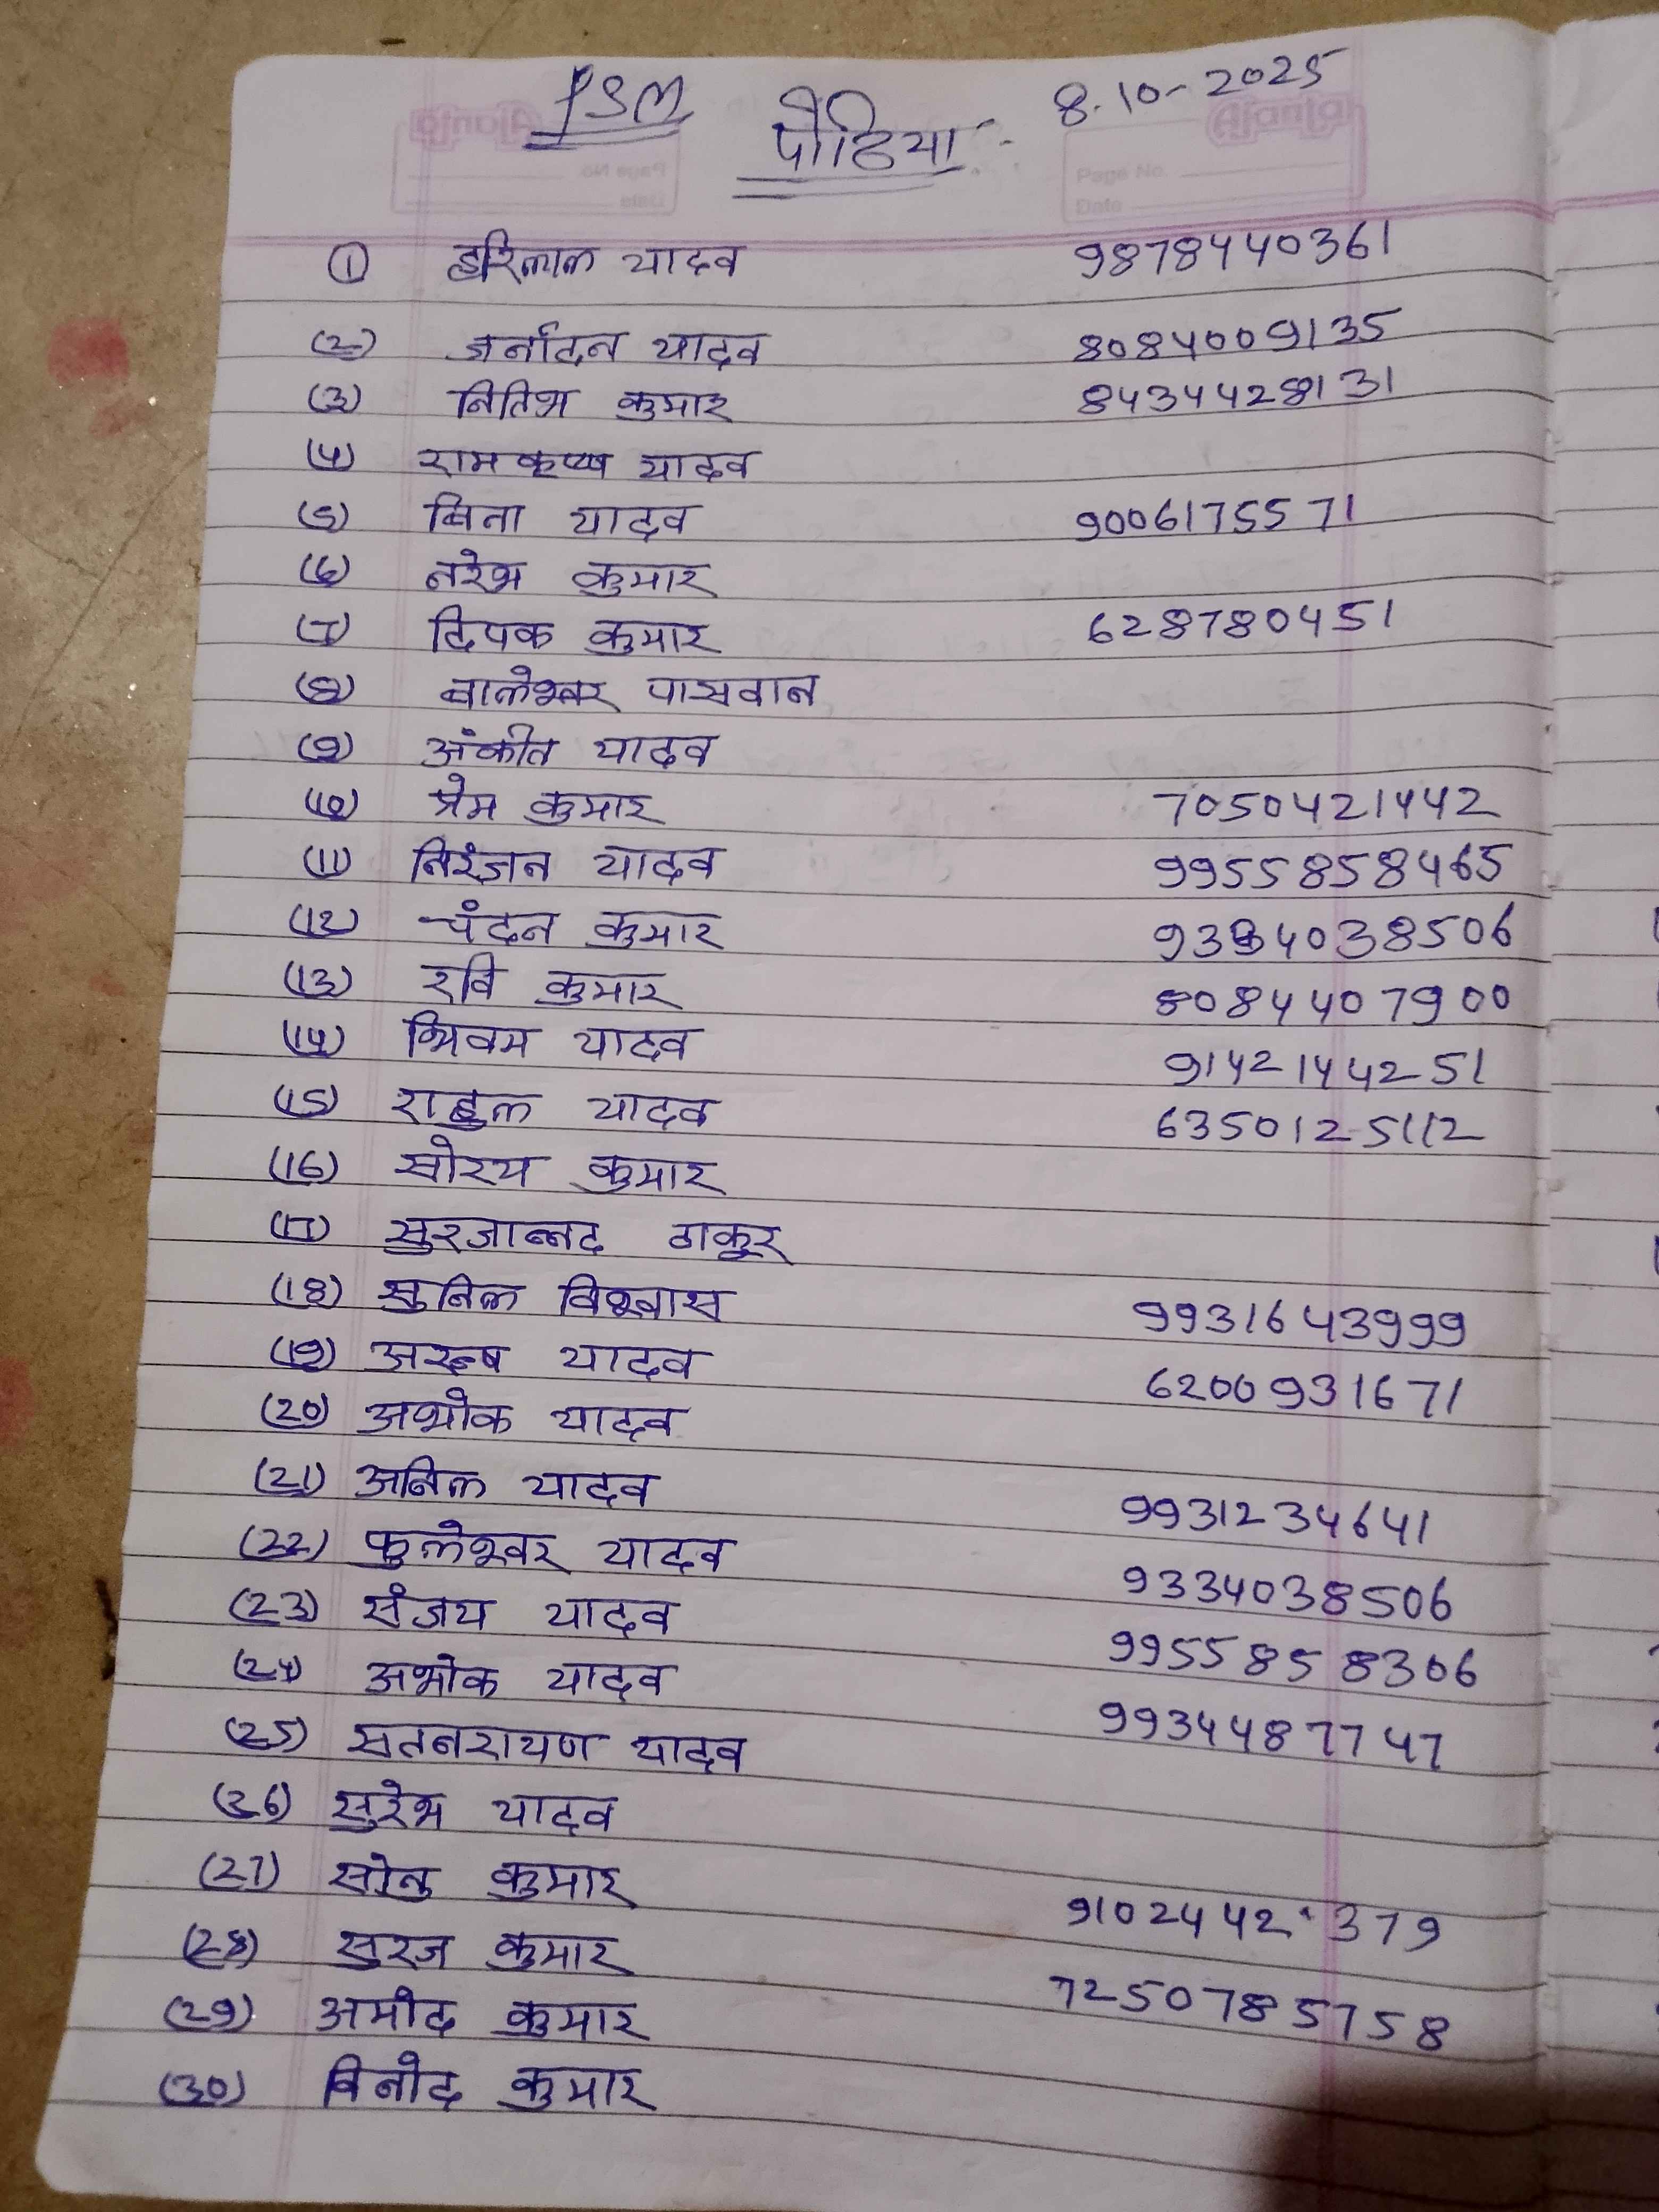 PSM
पोठिया :-
8.10-2025
① हरिलाल यादव 9878440361
(2) जर्नादन यादव 8084009135
(3) नितिश कुमार 8434428131
(4) रामकृष्ण यादव
(5) बिता यादव 9006175571
(6) नरेश कुमार
(7) दिपक कुमार 628780451
(8) बालेश्वर पासवान
(9) अंकीत यादव
(10) प्रेम कुमार 7050421442
(11) निरंजन यादव 9955858465
(12) चंदन कुमार 9334038506
(13) रवि कुमार 8084407900
(14) शिवम यादव 9142144251
(15) राहुल यादव 6350125112
(16) सोरय कुमार
(17) सुरजान्नद ठाकुर
(18) सुनिल विश्वास 9931643999
(19) अरूष यादव 6200931671
(20) अशोक यादव
(21) अनिल यादव 9931234641
(22) फुलेश्वर यादव 9334038506
(23) संजय यादव 9955858306
(24) अशोक यादव 9934487747
(25) सतनरायण यादव
(26) सुरेश यादव
(27) सोनु कुमार 9102442379
(28) सुरज कुमार 7250785758
(29) अमोद कुमार
(30) विनोद कुमार